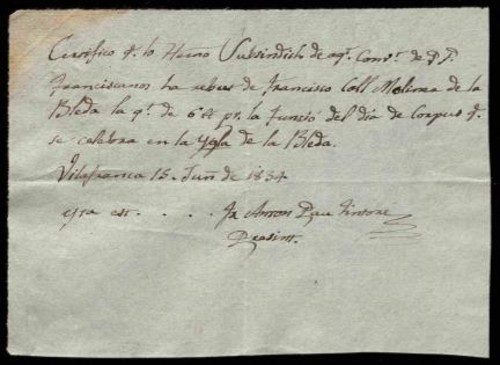 Certifico q.e lo Herno Subsindich de aq.t Conv.t de P.P.
Franciscanos ha rebut de Francisco Coll Moliner de la
Bleda la q.t de 6 ₶ pr. la Funció del dia de Corpus q.e
se celebra en la Ygla de la Bleda.
Vilafranca 15. Juñ de 1834
Fr. Anton Pau Tintoré